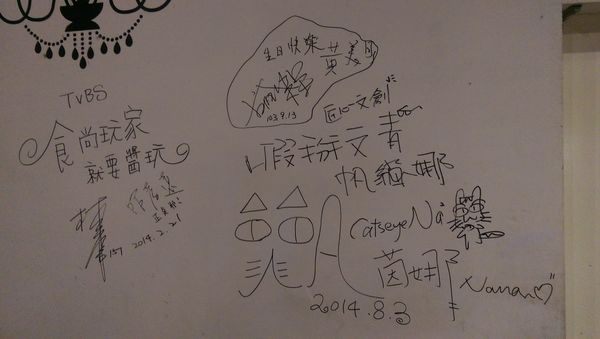 TVBS
食尚玩家
就要醬玩
2014.2.21
生日快樂
黃美
103.9.13
匠心文創
假掰文青
帆貓娜
Catseye Na
茵娜
Nana
2014.8.3